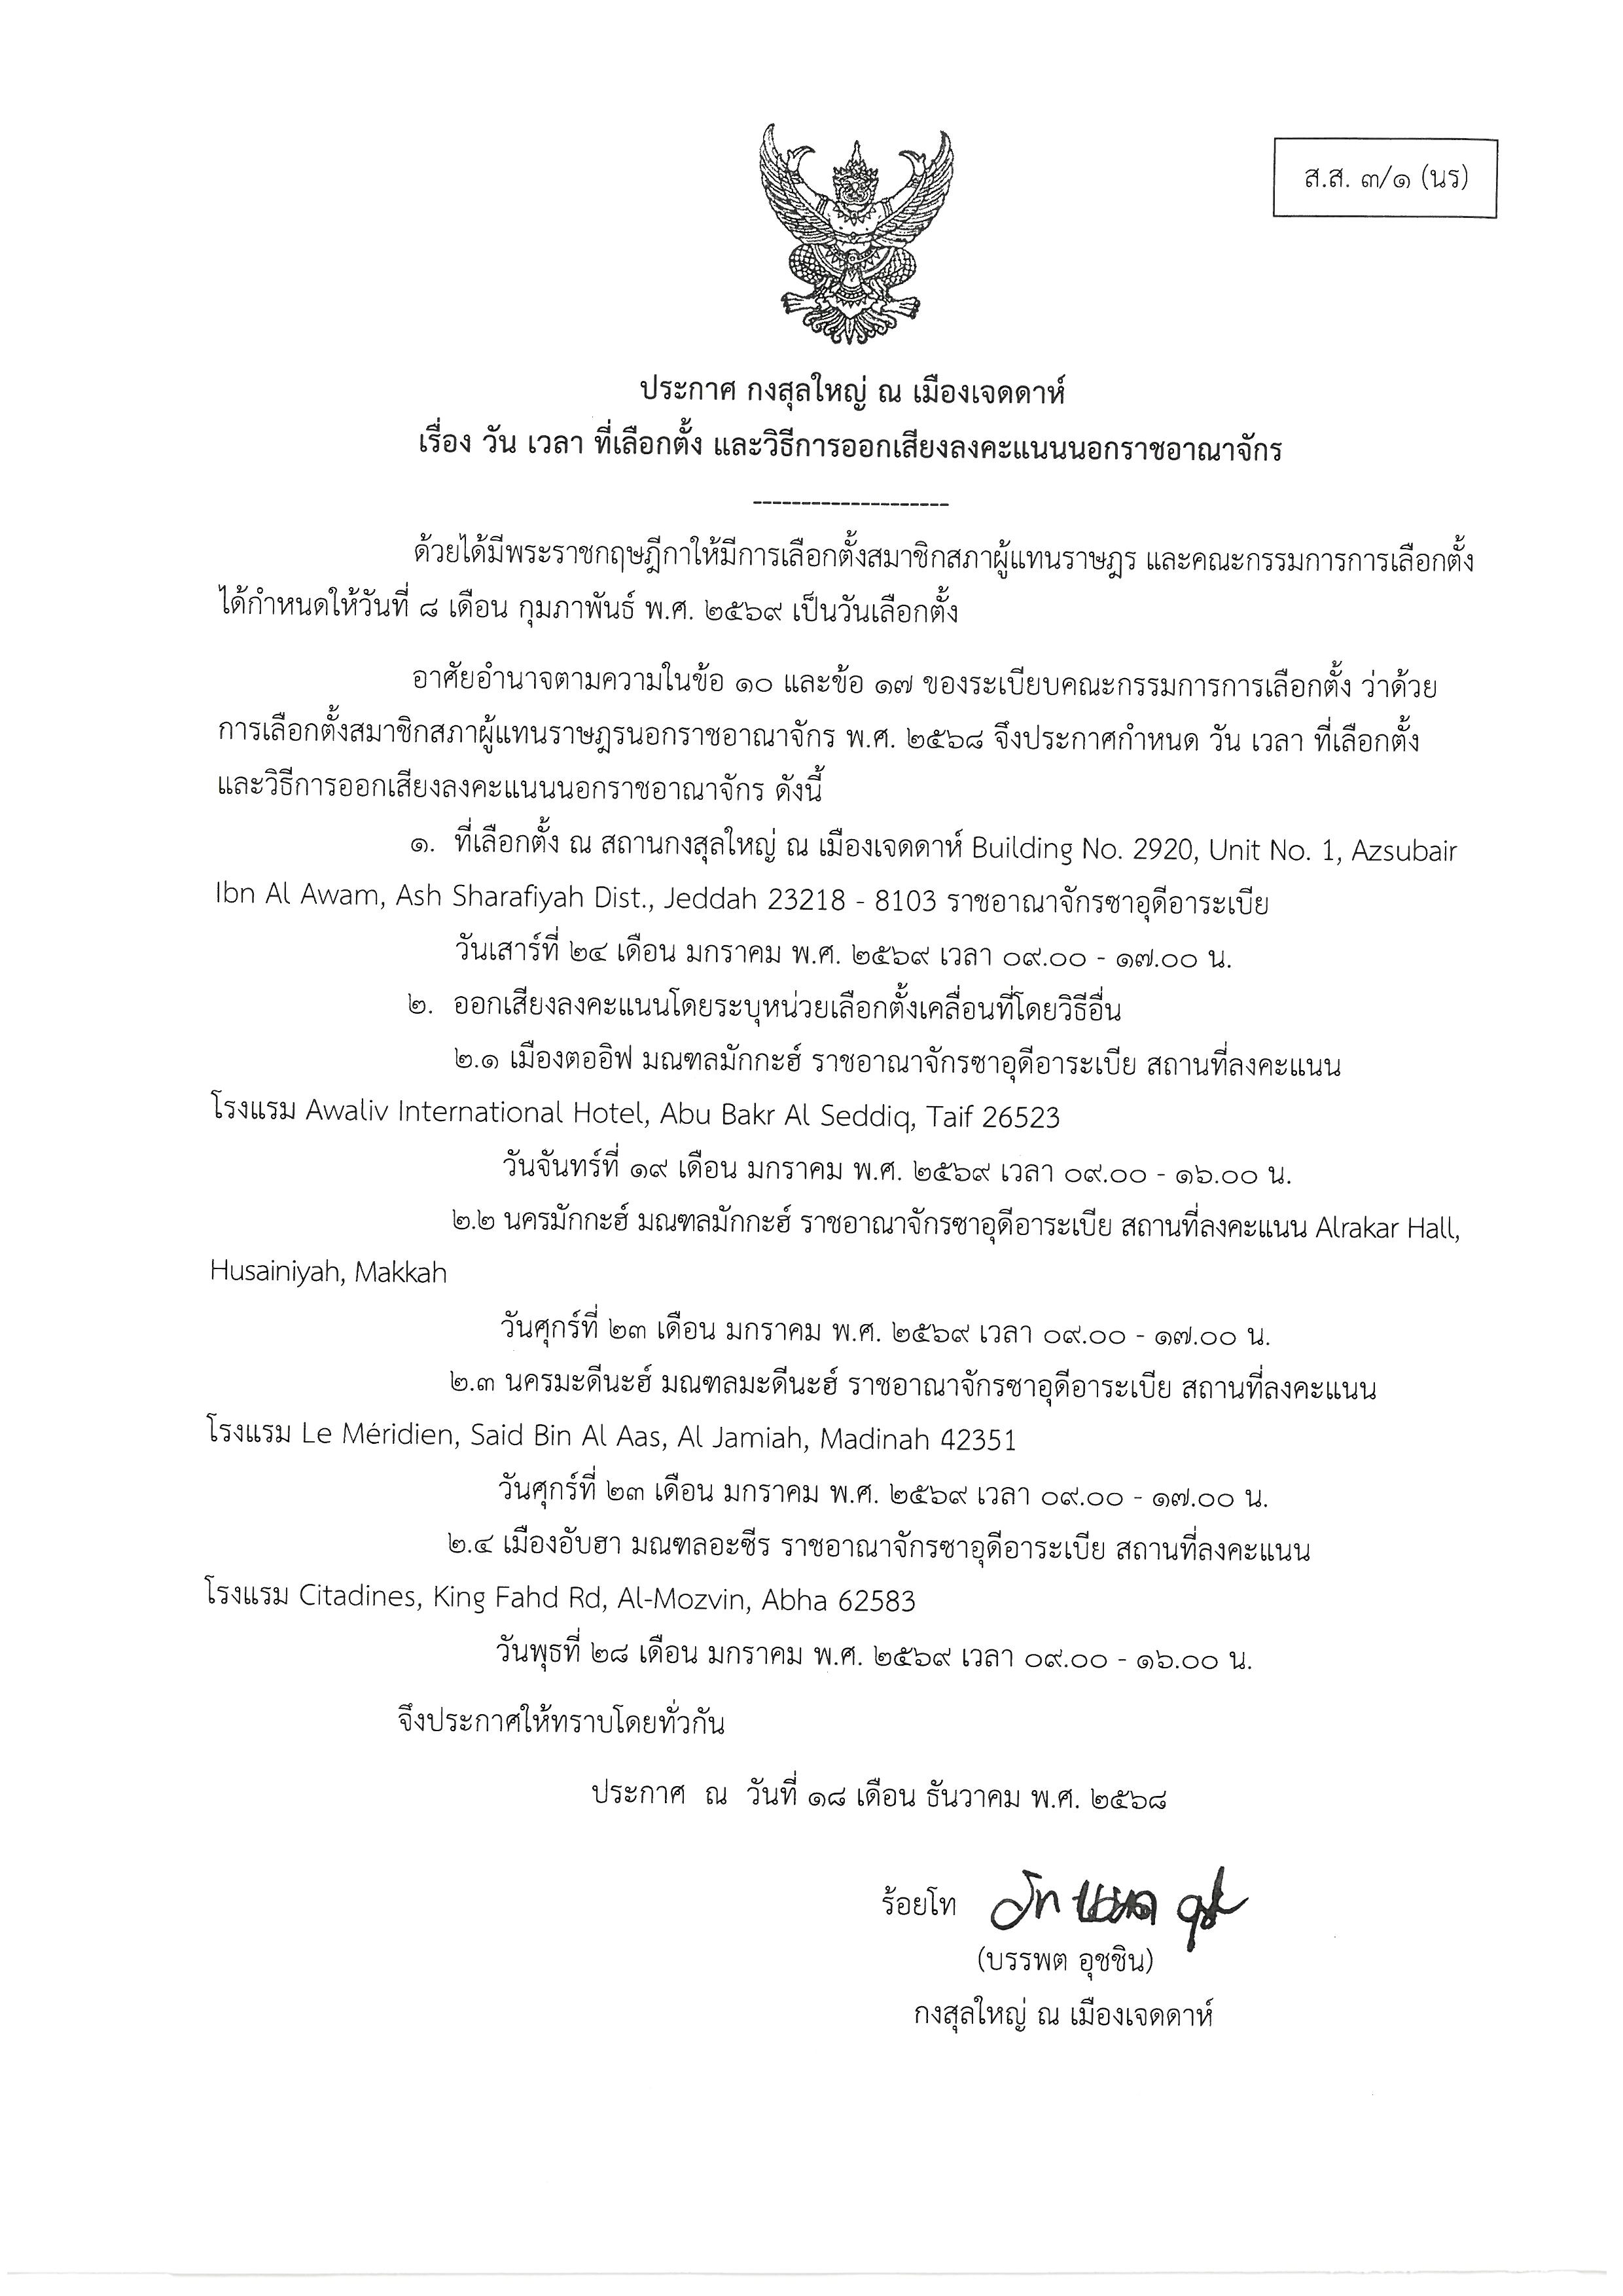 ส.ส. ๓/๑ (นร)
ประกาศ กงสุลใหญ่ ณ เมืองเจดดาห์
เรื่อง วัน เวลา ที่เลือกตั้ง และวิธีการออกเสียงลงคะแนนนอกราชอาณาจักร
--------------------
ด้วยได้มีพระราชกฤษฎีกาให้มีการเลือกตั้งสมาชิกสภาผู้แทนราษฎร และคณะกรรมการการเลือกตั้ง
ได้กำหนดให้วันที่ ๘ เดือน กุมภาพันธ์ พ.ศ. ๒๕๖๙ เป็นวันเลือกตั้ง
อาศัยอำนาจตามความในข้อ ๑๐ และข้อ ๑๗ ของระเบียบคณะกรรมการการเลือกตั้ง ว่าด้วย
การเลือกตั้งสมาชิกสภาผู้แทนราษฎรนอกราชอาณาจักร พ.ศ. ๒๕๖๘ จึงประกาศกำหนด วัน เวลา ที่เลือกตั้ง
และวิธีการออกเสียงลงคะแนนนอกราชอาณาจักร ดังนี้
๑. ที่เลือกตั้ง ณ สถานกงสุลใหญ่ ณ เมืองเจดดาห์ Building No. 2920, Unit No. 1, Azsubair
Ibn Al Awam, Ash Sharafiyah Dist., Jeddah 23218 - 8103 ราชอาณาจักรซาอุดีอาระเบีย
วันเสาร์ที่ ๒๔ เดือน มกราคม พ.ศ. ๒๕๖๙ เวลา ๐๙.๐๐ - ๑๗.๐๐ น.
๒. ออกเสียงลงคะแนนโดยระบุหน่วยเลือกตั้งเคลื่อนที่โดยวิธีอื่น
๒.๑ เมืองตออิฟ มณฑลมักกะฮ์ ราชอาณาจักรซาอุดีอาระเบีย สถานที่ลงคะแนน
โรงแรม Awaliv International Hotel, Abu Bakr Al Seddiq, Taif 26523
วันจันทร์ที่ ๑๙ เดือน มกราคม พ.ศ. ๒๕๖๙ เวลา ๐๙.๐๐ - ๑๖.๐๐ น.
๒.๒ นครมักกะฮ์ มณฑลมักกะฮ์ ราชอาณาจักรซาอุดีอาระเบีย สถานที่ลงคะแนน Alrakar Hall,
Husainiyah, Makkah
วันศุกร์ที่ ๒๓ เดือน มกราคม พ.ศ. ๒๕๖๙ เวลา ๐๙.๐๐ - ๑๗.๐๐ น.
๒.๓ นครมะดีนะฮ์ มณฑลมะดีนะฮ์ ราชอาณาจักรซาอุดีอาระเบีย สถานที่ลงคะแนน
โรงแรม Le Méridien, Said Bin Al Aas, Al Jamiah, Madinah 42351
วันศุกร์ที่ ๒๓ เดือน มกราคม พ.ศ. ๒๕๖๙ เวลา ๐๙.๐๐ - ๑๗.๐๐ น.
๒.๔ เมืองอับฮา มณฑลอะซีร ราชอาณาจักรซาอุดีอาระเบีย สถานที่ลงคะแนน
โรงแรม Citadines, King Fahd Rd, Al-Mozvin, Abha 62583
วันพุธที่ ๒๘ เดือน มกราคม พ.ศ. ๒๕๖๙ เวลา ๐๙.๐๐ - ๑๖.๐๐ น.
จึงประกาศให้ทราบโดยทั่วกัน
ประกาศ ณ วันที่ ๑๘ เดือน ธันวาคม พ.ศ. ๒๕๖๘
ร้อยโท
(บรรพต อุชชิน)
กงสุลใหญ่ ณ เมืองเจดดาห์